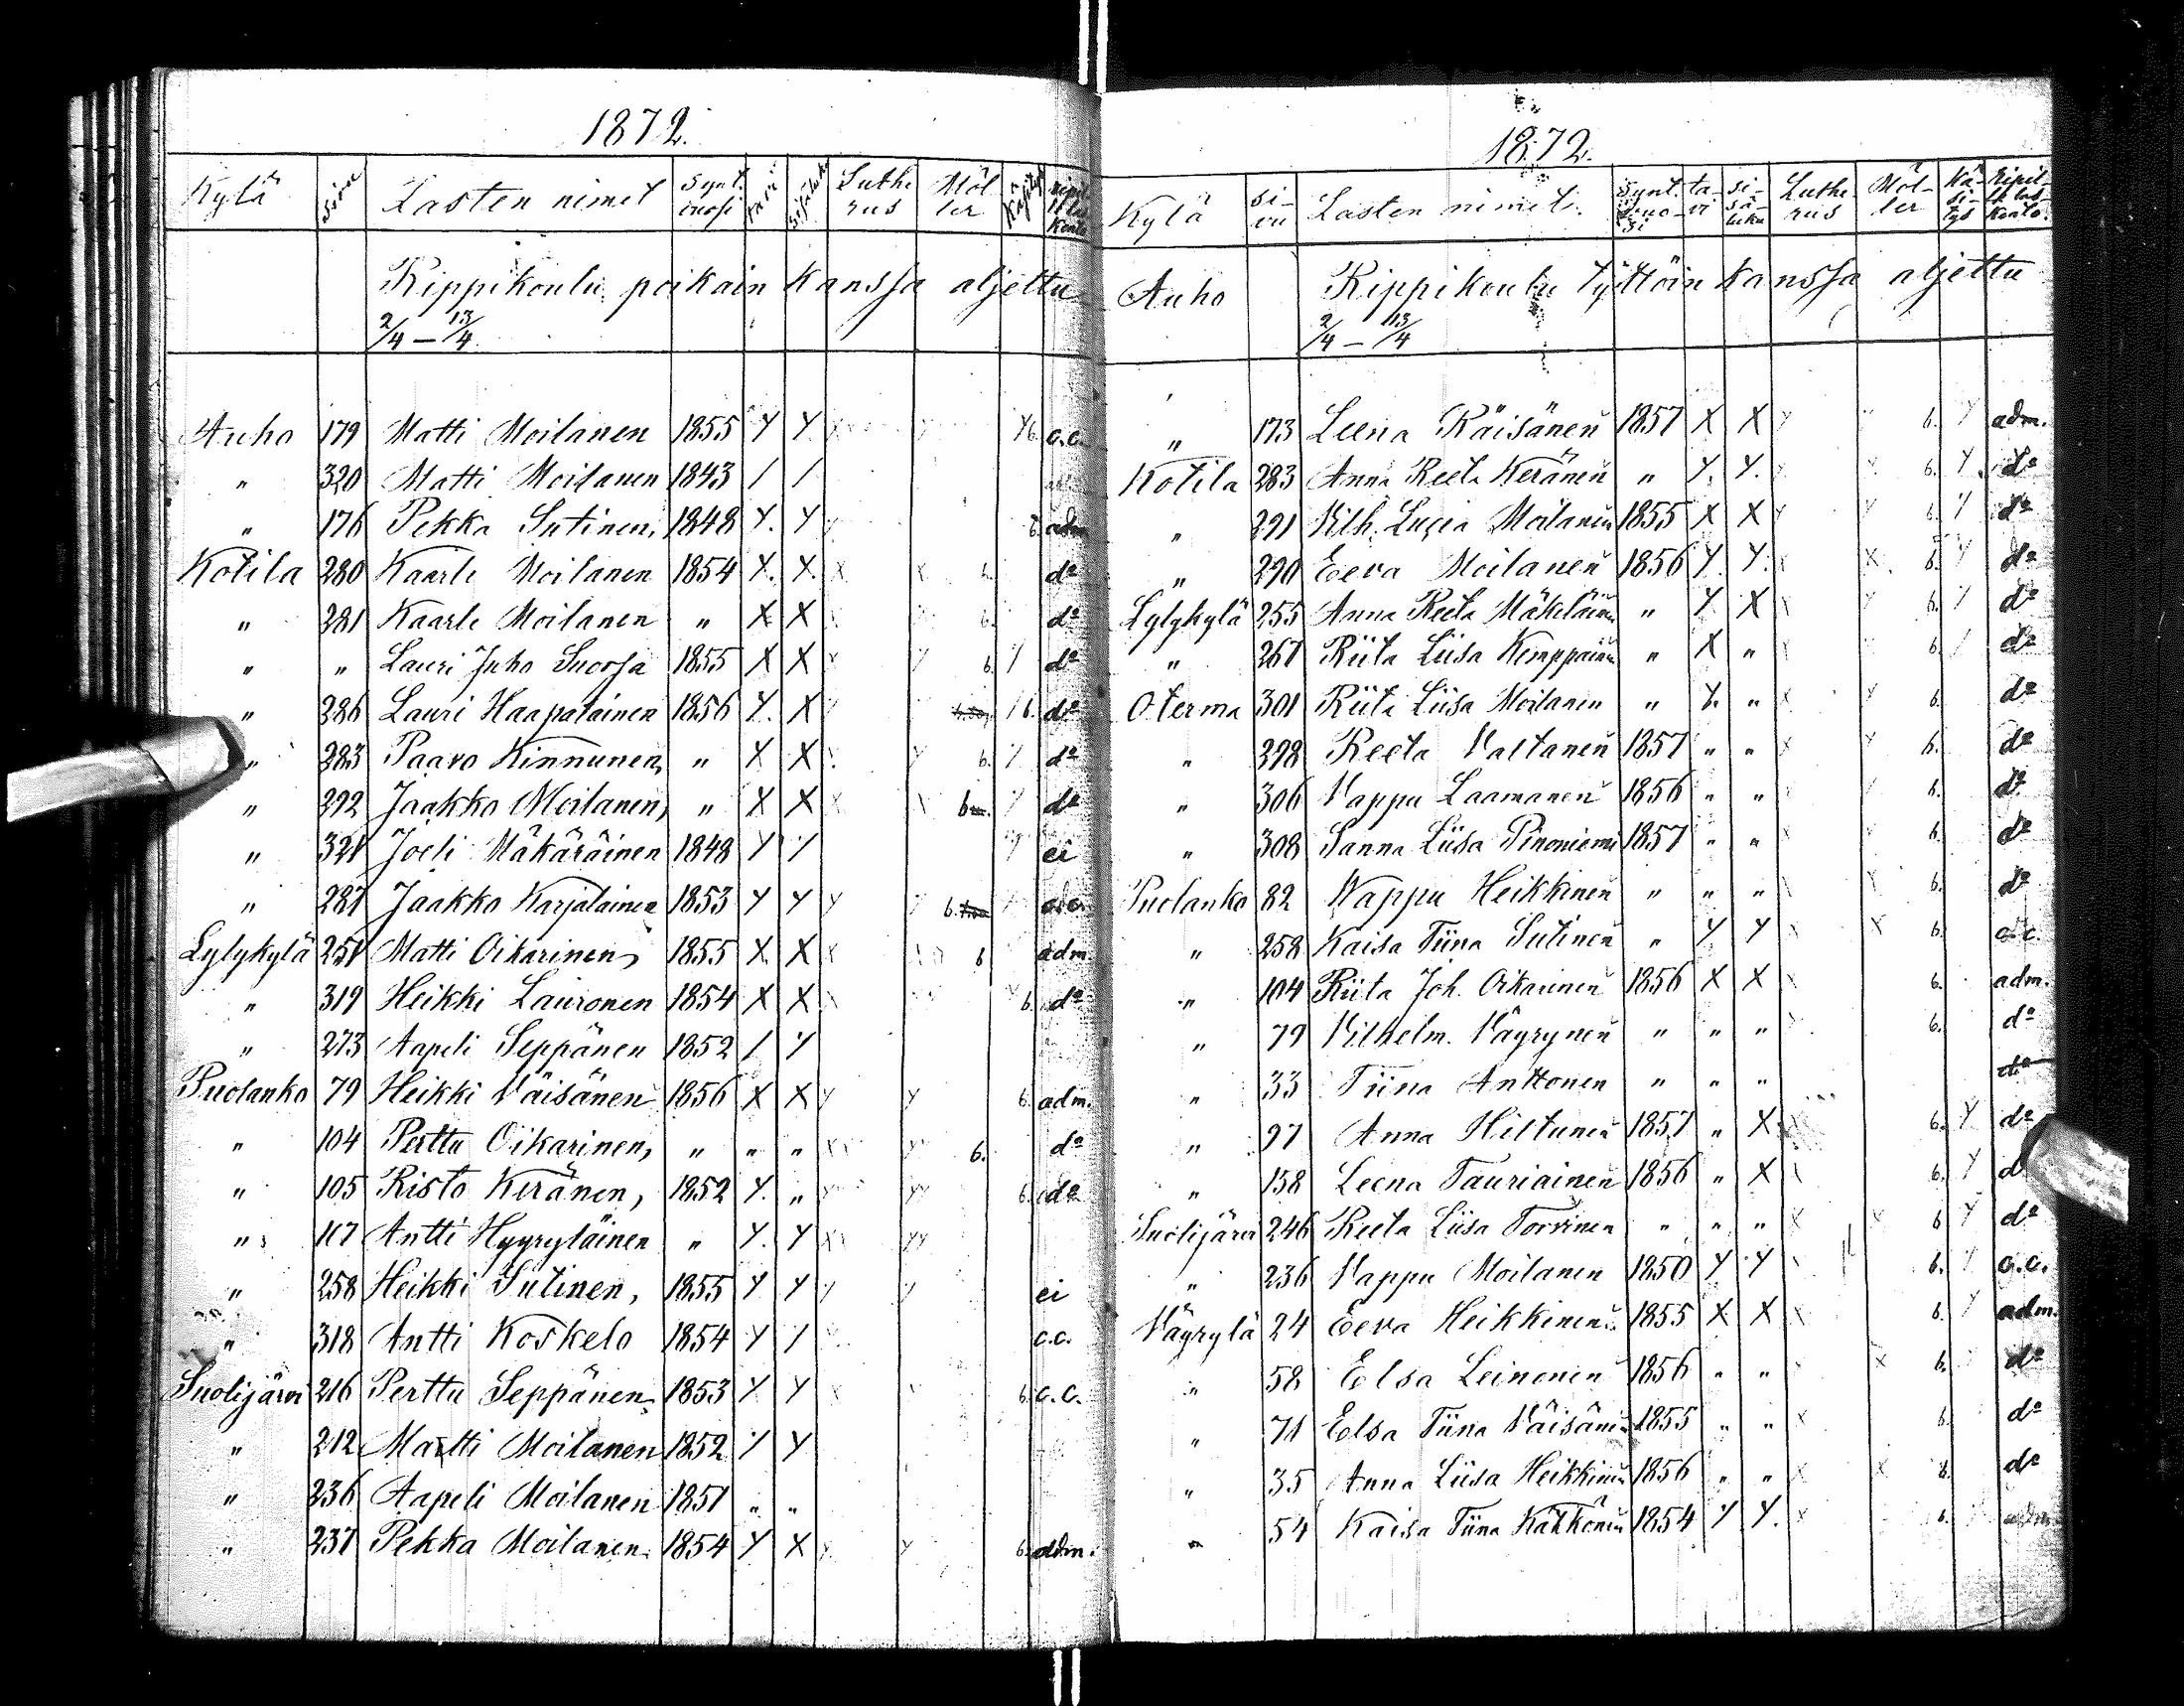 1872.
Kylä Sivu Lasten nimet Synt. vuosi tavu Sisäluku Luthe rus Möl ler Käsitys
Rippikoulu poikain kanssa aljettu
2/4 – 13/4
Auho 179 Matti Moilanen 1855 Y Y c.c.
" 320 Matti Moilanen 1843 / /
" 176 Pekka Sutinen, 1848 Y. Y 6. adm
Kotila 280 Kaarle Moilanen 1854 X. X. X X 6. do
" 281 Kaarle Moilanen " X X 6. do
" " Lauri Juho Suorsa 1855 X X Y Y 6. / do
" 286 Lauri Haapalainen 1856 Y. X / 6. do
" 283 Paavo Kinnunen, " X X Y 6. / do
" 292 Jaakko Moilanen, " X X X X 6 / do
" 321 Joeli Mäkäräinen 1848 Y / ei
" 287 Jaakko Karjalainen 1853 Y Y Y 6. c.c.
Lylykylä 251 Matti Oikarinen, 1855 X X 6 adm.
" 319 Heikki Lauronen 1854 X X 6. do
" 273 Aapeli Seppänen 1852 / Y
Puolanko 79 Heikki Väisänen 1856 X X Y Y 6. adm.
" 104 Perttu Oikarinen, " " " 6. do
" 105 Risto Keränen, 1852 Y. " 6. do
" 117 Antti Hyyryläinen " Y. Y
" 258 Heikki Sutinen, 1855 Y Y Y Y ei
" 318 Antti Koskelo 1854 Y / c.c.
Suolijärvi 216 Perttu Seppänen, 1853 Y Y 6. c.c.
" 212 Martti Moilanen 1852 Y Y
" 236 Aapeli Moilanen 1851 " "
" 237 Pekka Moilanen 1854 Y X Y Y 6. adm.
1872.
Kylä si- vu Lasten nimet. synt. vuo- si ta- vi si- sä- luku Luthe- rus Möl- ler Kä- si- tys
Auho Rippikoulu tyttöin kanssa aljettu
2/4 – 13/4
" 173 Leena Räisänen 1857 X X Y 6. Y adm.
Kotila 283 Anna Reeta Keränen " Y. Y. 6. Y do
" 291 Vilh. Lucia Moilanen 1855 X X Y 6. Y do
" 290 Eeva Moilanen 1856 Y Y. X. 6. Y do
Lylykylä 255 Anna Reeta Mäkeläinen " Y X 6. Y do
" 267 Riita Liisa Kemppainen " X " 6. / do
Oterma 301 Riita Liisa Moilanen " Y. " X Y 6. do
" 298 Reeta Valtanen 1857 " " X Y 6. do
" 306 Vappu Laamanen 1856 " " 6. do
" 308 Sanna Liisa Pinoniemi 1857 " " 6. do
Puolanko 82 Vappu Heikkinen " " " X 6. do
" 258 Kaisa Tiina Sutinen " Y Y X 6. c.c.
" 104 Riita Joh. Oikarinen 1856 X X 6. adm.
" 79 Vilhelm. Väyrynen " " " 6. do
" 33 Tiina Anttonen " " " do
" 97 Anna Hiltunen 1857 " X 6. Y do
" 158 Leena Tauriainen 1856 " X 6. Y d
Suolijärvi 246 Reeta Liisa Torvinen " " " X X 6 Y do
" 236 Vappu Moilanen 1850 Y Y 6. c.c.
Väyrylä 24 Eeva Heikkinen. 1855 X X 6. Y adm.
" 58 Elsa Leinonen 1856 " " X 6. do
" 71 Elsa Tiina Väisänen 1855 " " X 6. do
" 35 Anna Liisa Heikkinen 1856 " " X X 6. do
" 54 Kaisa Tiina Kätkönen 1854 Y Y. X 6. adm.